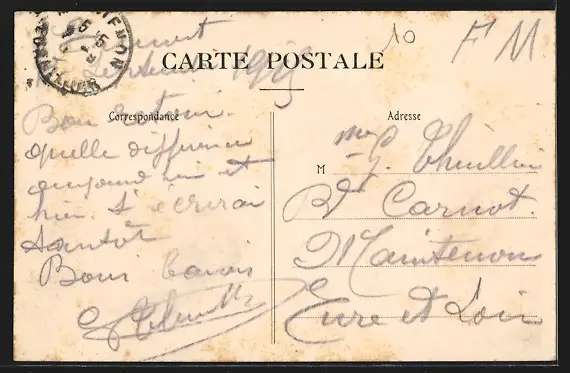 10 F M
CARTE POSTALE
1915
Correspondance
Bon retour.
quelle différence
aujourd'hui et
hier. T'écrirai
tantôt
Bons baisers
Adresse
M
me G. Thuillier
Bd Carnot.
Maintenon
Eure et Loir